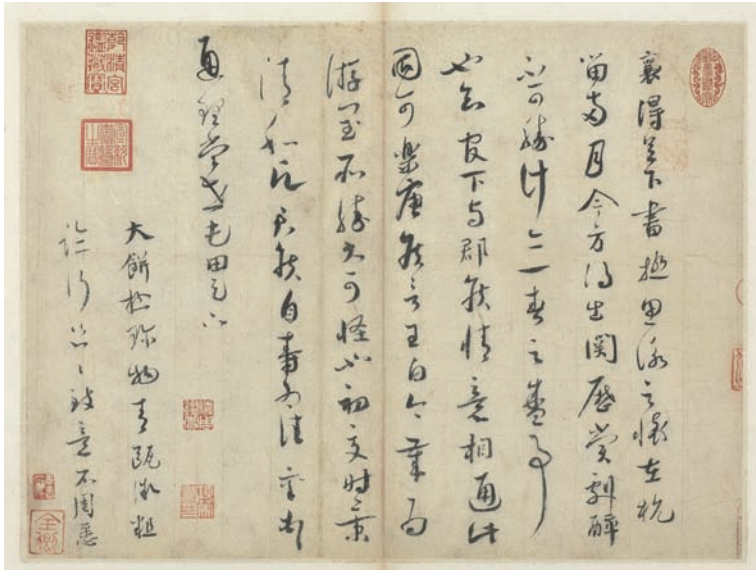 襄得足下書極思詠之懷在杭
留兩月今方得出關歷賞劇醉
不可勝計亦一春之盛事
也知官下與郡侯情意相通此
固可樂唐侯言王白今歲為
游閏所勝大可怪也初夏時景
清和願君侯自壽為佳襄頓首
通理當世屯田足下
大餅極珍物青甌微粗
臨行匆匆致意不周悉
乾清宮鑑藏寶
全卿